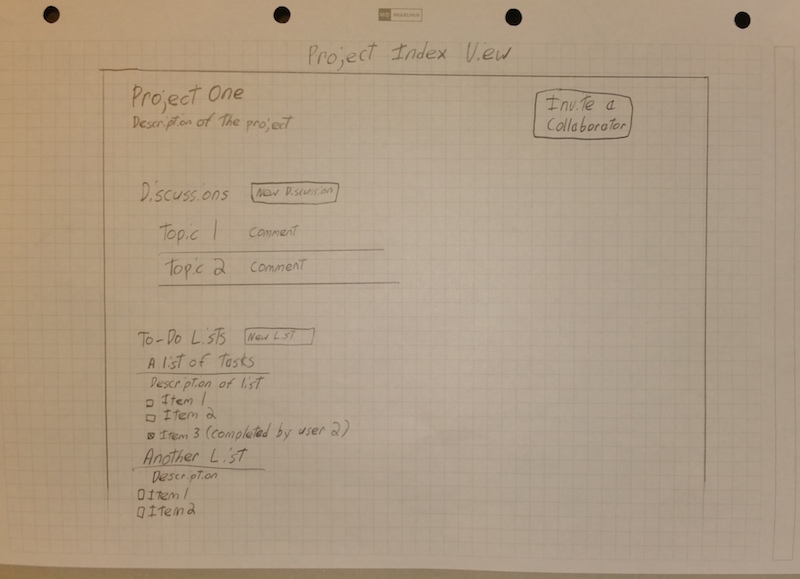 Project Index View
Project One
Description of the project
Invite a
Collaborator
Discussions New Discussion
Topic 1 Comment
Topic 2 Comment
To-Do Lists New List
A list of tasks
Description of list
Item 1
Item 2
Item 3 (completed by user 2)
Another List
Description
Item 1
Item 2